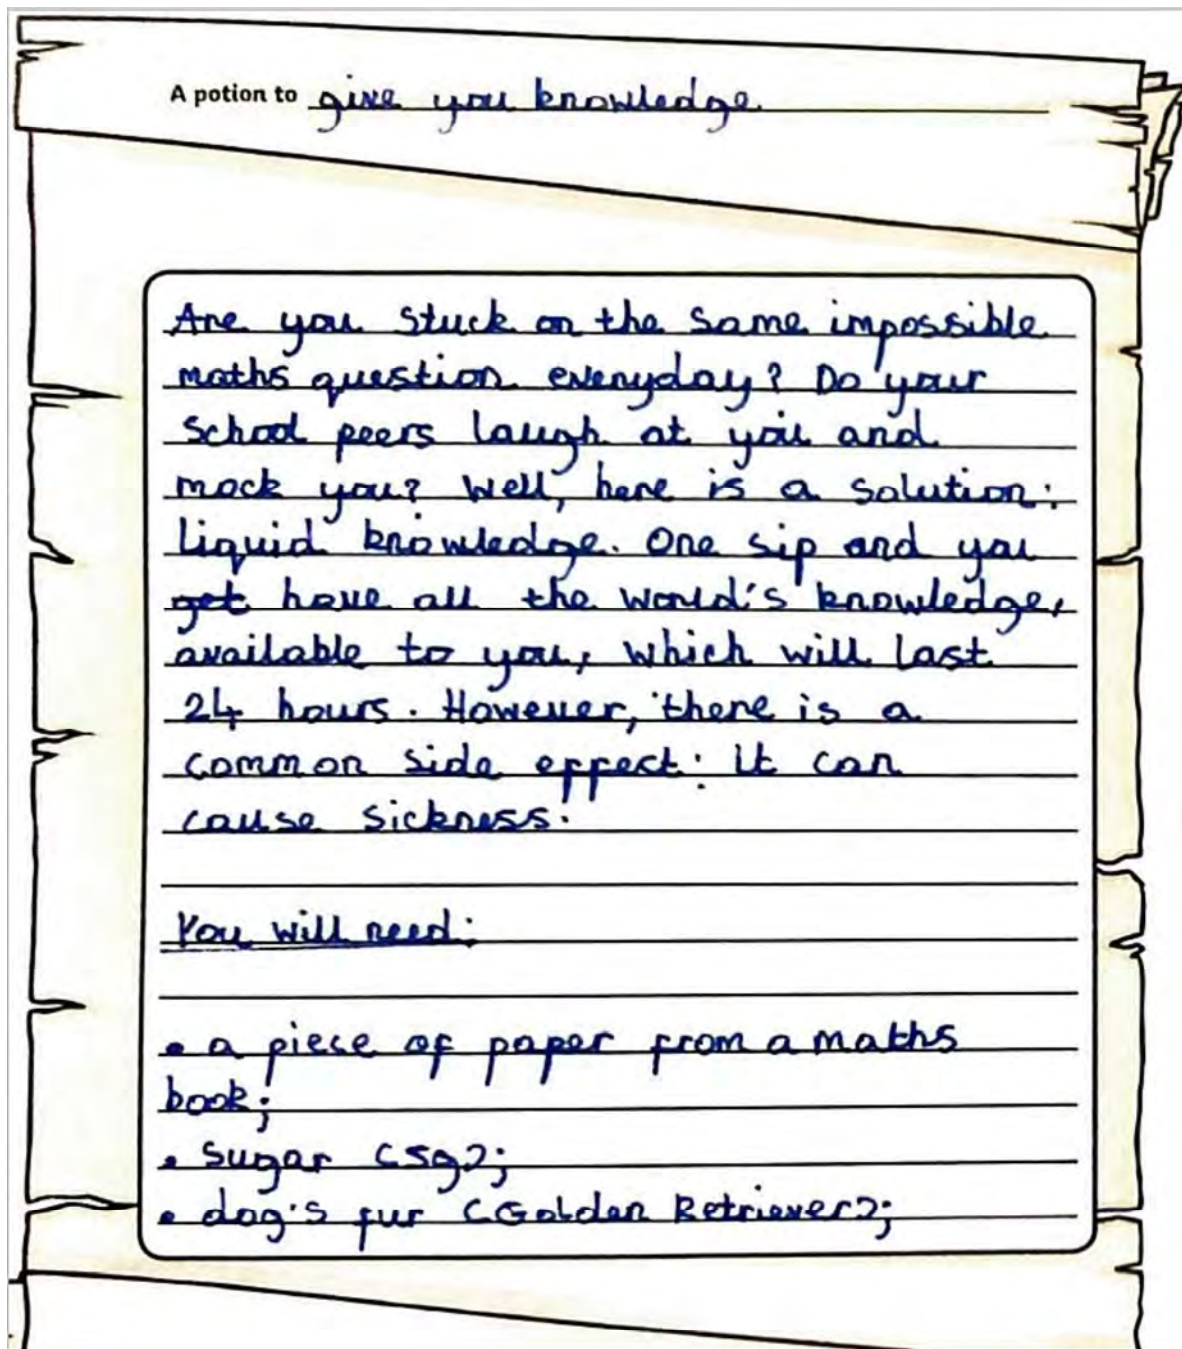 A potion to give you knowledge
Are you stuck on the same impossible
maths question everyday? Do your
school peers laugh at you and
mock you? Well, here is a solution:
liquid knowledge. One sip and you
get have all the world's knowledge,
available to you, which will last
24 hours. However, there is a
common side effect: it can
cause sickness.
You will need:
• a piece of paper from a maths
book;
• sugar (5g);
• dog's fur (Golden Retriever);